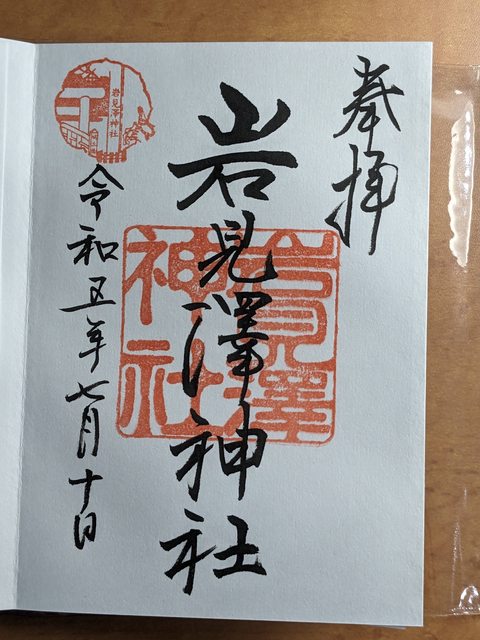 奉拝
岩見澤神社
岩見澤神社
令和五年七月十日
岩見澤神社